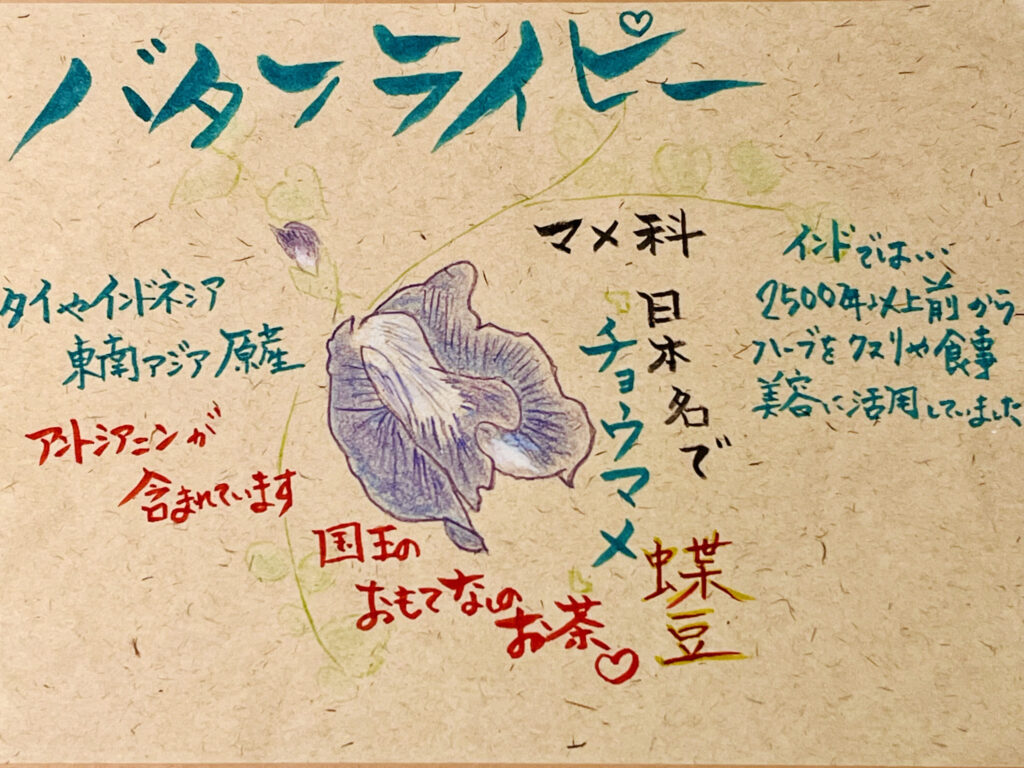 バタフライピー
マメ科
日本名で
チョウマメ
蝶豆
インドでは…
2500年以上前から
ハーブをクスリや食事
美容に活用していました
タイやインドネシア
東南アジア原産
アントシアニンが
含まれています
国王の
おもてなしの
お茶♡